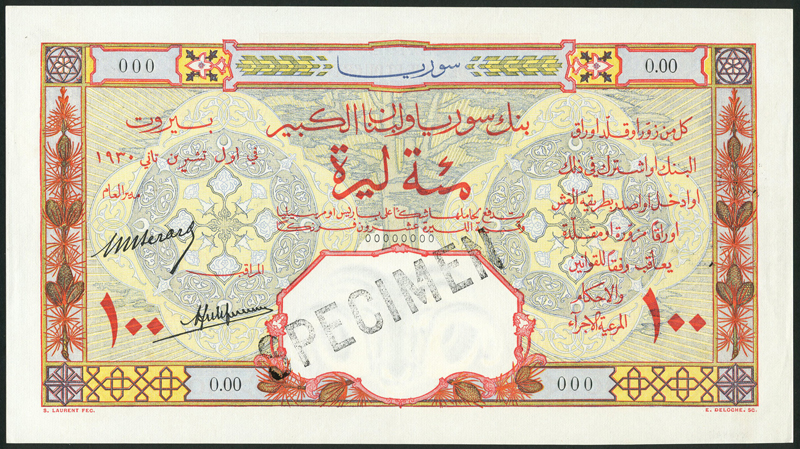 000
سوريا
0.00
بنك سوريا ولبنان الكبير
بيروت
في اول تشرين ثاني ١٩٣٠
مئة ليرة
تدفع لحاملها شكًا على باريس او مرسيليا
وقيمة الليرة عشرون فرنكًا
00000000
مدير العام
المراقب
كل من زور او قلد اوراق
البنك او اشترك في ذلك
او ادخل او اصدر بطريقة الغش
اوراقًا مزورة او مقلدة
يعاقب وفقًا للقوانين
والاحكام
المرعية الاجراء
١٠٠
١٠٠
SPECIMEN
0.00
000
S. LAURENT FEC.
E. DELOCHE. SC.